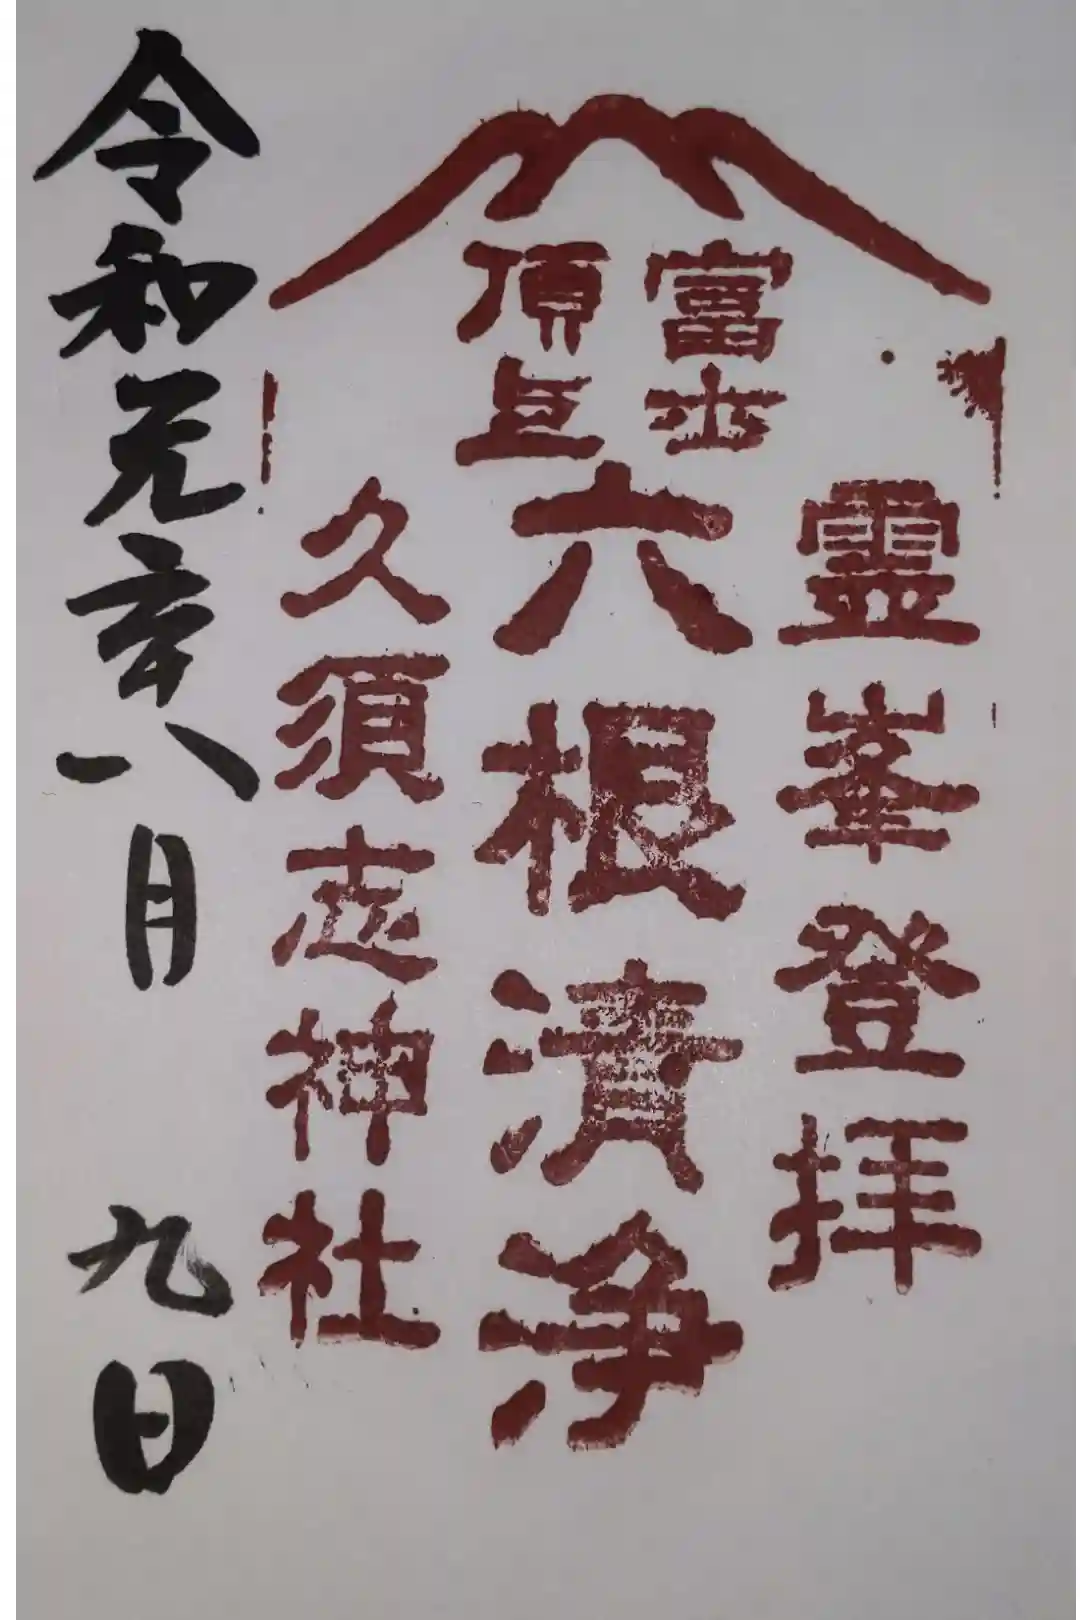 富士
頂上
霊峯登拝
六根清浄
久須志神社
令和元年八月 九日